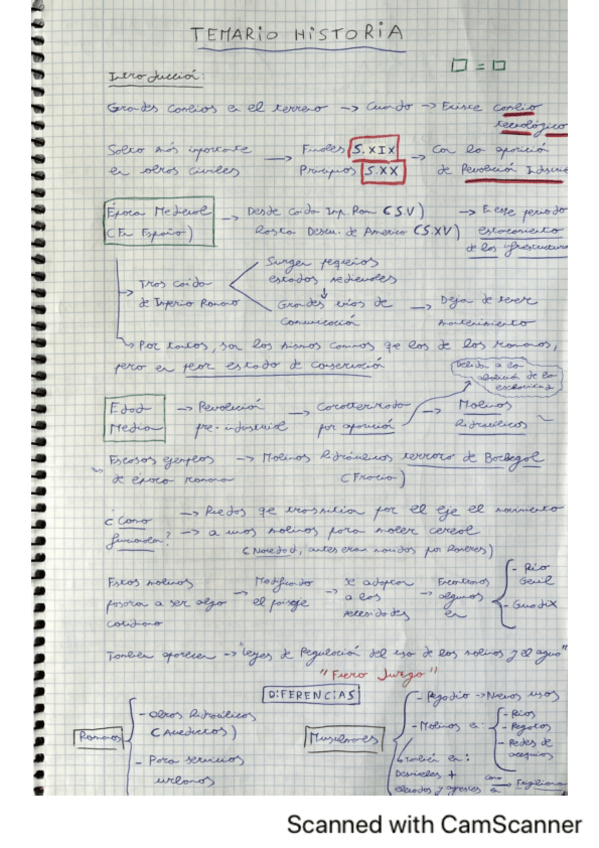 TEMARIO HISTORIA
□ = □
Introducción:
Grandes cambios en el terreno → Cuando → Existe cambio
tecnológico
Salto más importante → Finales S. XIX → Con la aparición
en obras civiles Principios S. XX de Revolución Industr
Época Medieval → Desde Caída Imp. Rom (S.V) → En este periodo
(En España) hasta Descu. de América (S.XV) estancamiento
de las infraestructura
→ Tras caída Surgen pequeños
de Imperio Romano estados medievales
Grandes vías de → Deja de tener
comunicación mantenimiento
→ Por tantos, son los mismos caminos qe los de los romanos,
pero en peor estado de conservación
Debido a la
de la
esclavitud
Edad → Revolución → Caracterizada → Molinos
Media pre-industrial por aparición hidráulicos
Escasos ejemplos → Molinos hidráulicos terraza de Barbegal
de época romana (Francia)
¿Como → Ruedas qe trasmitía por el eje el movimiento
funcionaba? → a unos molinos para moler cereal
(Novedad, antes eran movidos por hombres)
Estos molinos → Modificando → se adaptan → Encontramos - Río
pasaron a ser algo el paisaje a las algunos Genil
cotidiano necesidades en - Guadix
También aparecen → "Leyes de Regulación del uso de los molinos y el agua"
"Fuero Juzgo"
DIFERENCIAS
Romanos - Obras hidráulicas
(Acueductos)
- Para servicios
urbanos
Musulmanes - Regadío → Nuevos usos
- Molinos en: - Ríos
- Regatos
- Redes de
acequias
- También en:
Desniveles + como
elevados y agrestes en